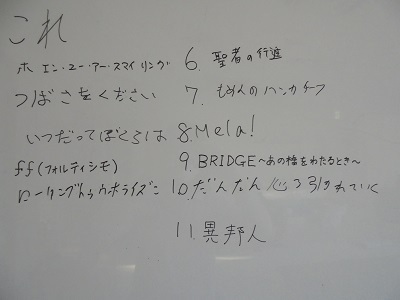 これ
ホエン・ユー・アー・スマイリング
つばさをください
いつだってぼくらは
ff(フォルティシモ)
ローリングトゥウホライズン
6. 聖者の行進
7. もめんのハンカチーフ
8. Mela!
9. BRIDGE〜あの橋をわたるとき〜
10. だんだん心ひかれていく
11. 異邦人